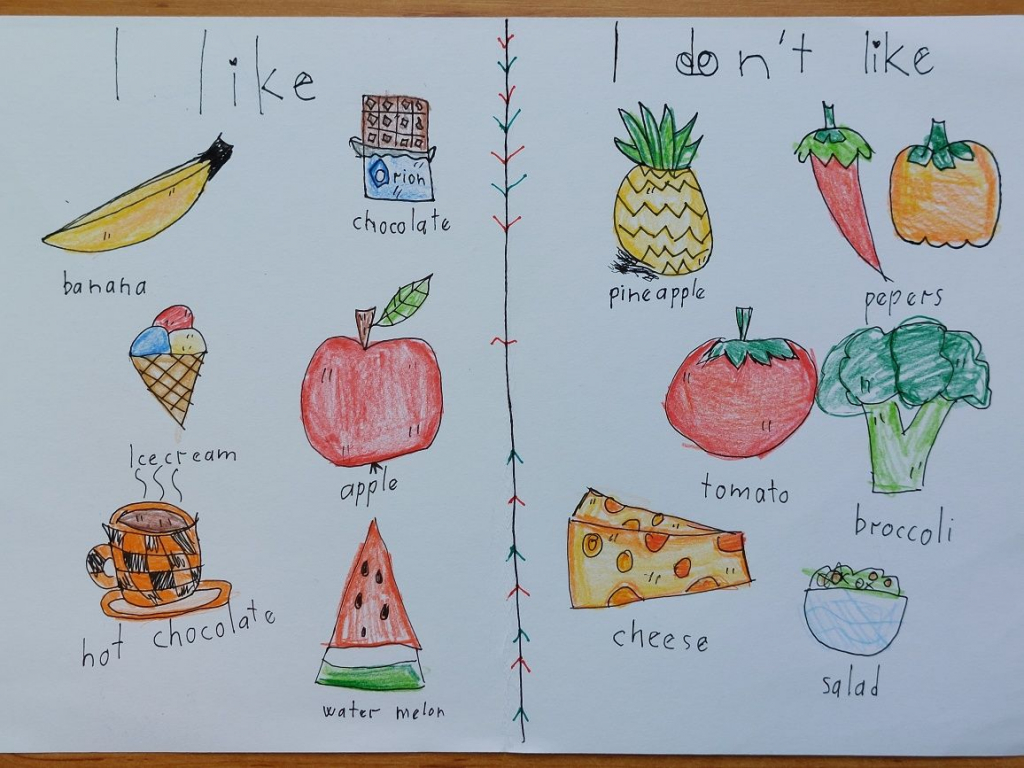 I like
chocolate
Orion
banana
Icecream
apple
hot chocolate
water melon
I don't like
pineapple
pepers
tomato
broccoli
cheese
salad